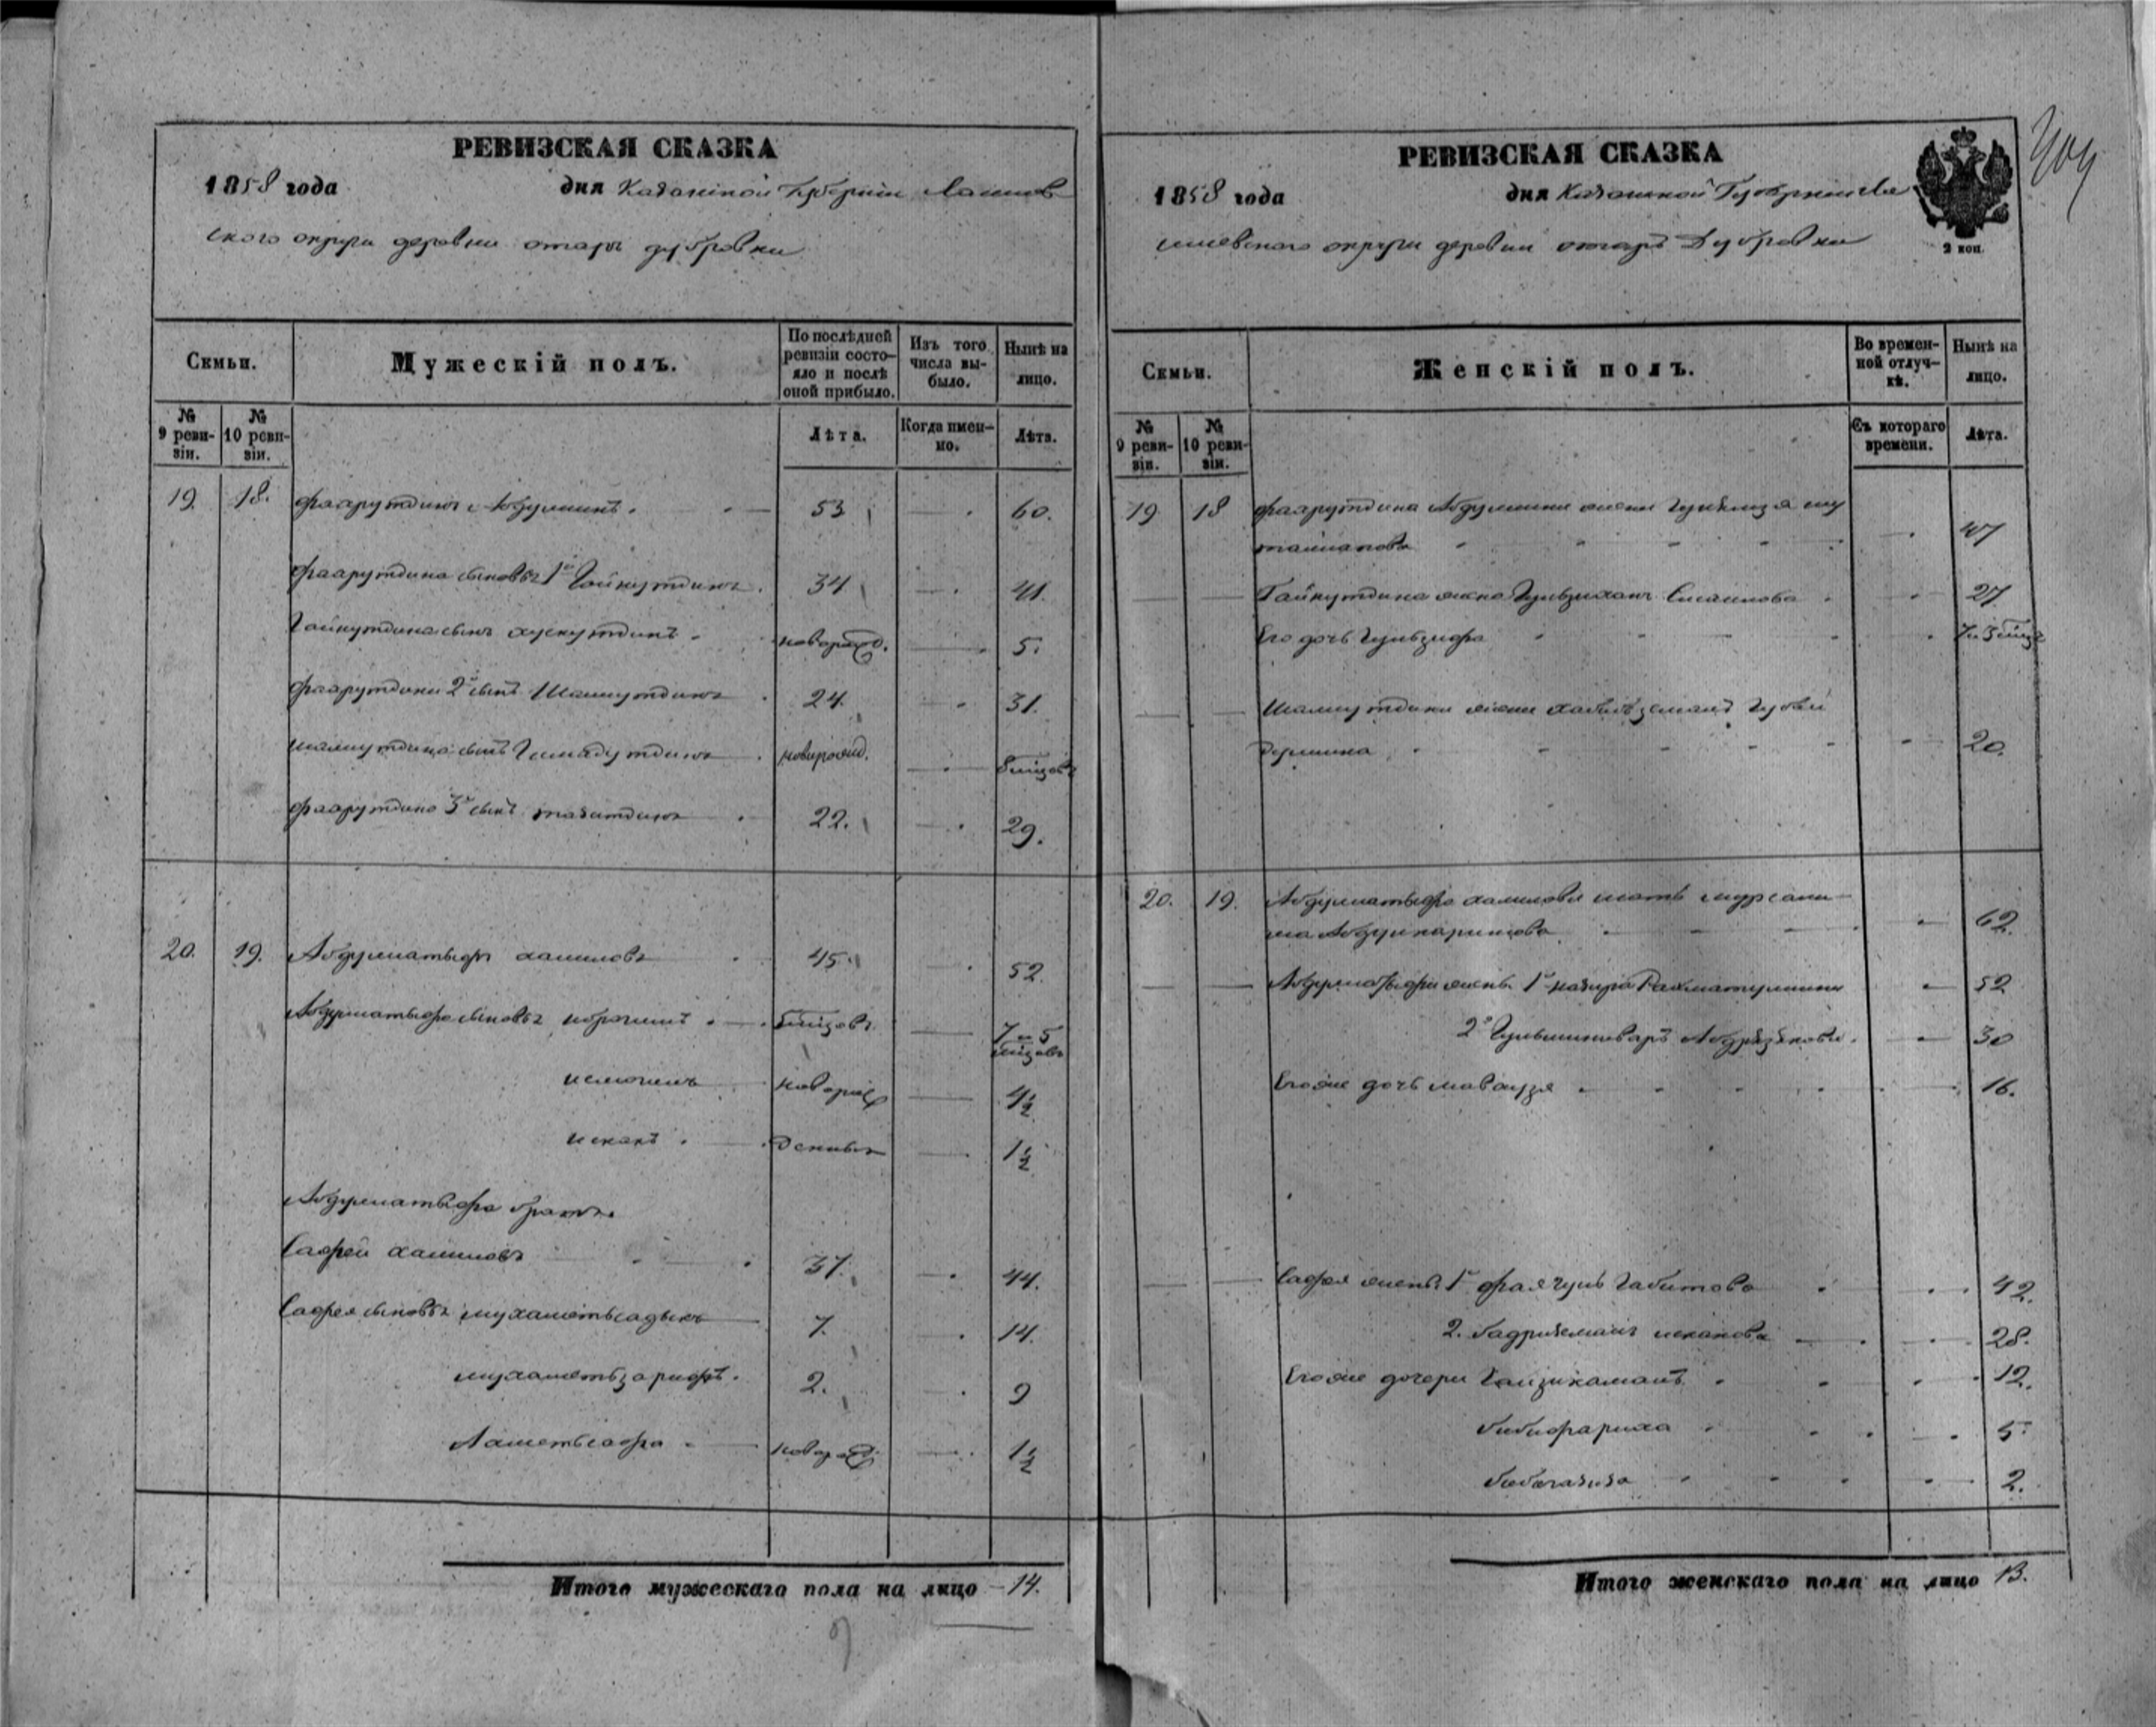 РЕВИЗСКАЯ СКАЗКА
1858 года дня Казанской Губернии Лаишев
ского округа деревни отаръ дубровки
Скмьи. Мужескій полъ. По послѣдней ревизіи состо- яло и послѣ оной прибыло. Изъ того числа вы- было. Нынѣ на лицо.
№ 9 реви- зіи. № 10 реви- зіи. Лѣта. Когда имен- но. Лѣта.
19. 18. фахрутдинъ Абдулминъ. 53 60.
фахрутдина сыновья 1й Гайнутдинъ. 34 41.
Гайнутдина сынъ хуснутдинъ новорожд. 5.
фахрутдина 2й сынъ Шамсутдинъ 24. 31.
шамсутдина сынъ Гимадутдинъ новорожд. 8 мѣсяцовъ
фахрутдина 3й сынъ тазитдинъ 22. 29.
20. 19. Абдуллатыфъ халиловъ 45. 52.
Абдуллатыфа сыновья ибрагимъ мѣсяцовъ 7 и 5 мѣсяцовъ
исмагилъ новорож 4½
исхакъ 1½
Абдуллатыфа братъ
Сафей халиловъ 37. 44.
Сафея сыновья мухаметьсадыкъ 7. 14.
мухаметьзарифъ. 2. 9
Ахметьсафа новорожд. 1½
Итого мужескаго пола на лицо 14.
РЕВИЗСКАЯ СКАЗКА
1858 года дня Казанской Губерніи Ла
ишевскаго округа деревни отаръ Дубровки
2 коп.
Скмьи. Женскій полъ. Во времен- ной отлуч- кѣ. Нынѣ на лицо.
№ 9 реви- зіи. № 10 реви- зіи. Съ котораго времени. Лѣта.
19 18 фахрутдина Абдулмина жена му
47
Гайнутдина жена Гульзиханъ Смаилова 27.
Его дочь Гульзифа 7 и 3 мѣсяца
Шамсутдина жена хабибъземалъ Губай
дуллина 20.
20. 19. Абдуллатыфа халилова мать
Абдулкаримова 62.
Абдуллатыфа жены. 1я назира Рахматуллина 52
2я 30
Его же дочь 16.
Сафея жены 1я Габитова 42.
2. бадриземалъ исхакова 28.
Его же дочери 12.
бибифариха 5
бибигазиза 2.
Итого женскаго пола на лицо 13.